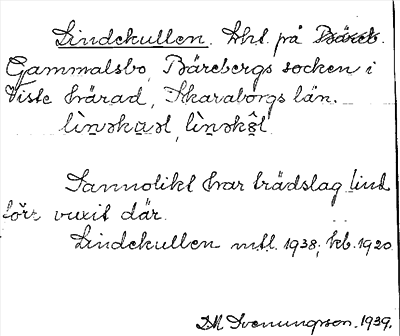 Lindekullen. Lht. på Bäreb.
Gammalsbo, Bärebergs socken i
Viste härad, Skaraborgs län.
Sannolikt har trädslag lind
förr vuxit där.
Lindekullen mtl. 1938; kb. 1920
D.M. Svenungsson. 1939.